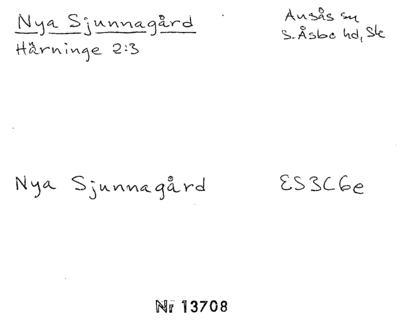 Nya Sjunnagård
Härninge 2:3
Ausås sn
S. Åsbo hd, Sk
Nya Sjunnagård
ES3C6e
Nr 13708